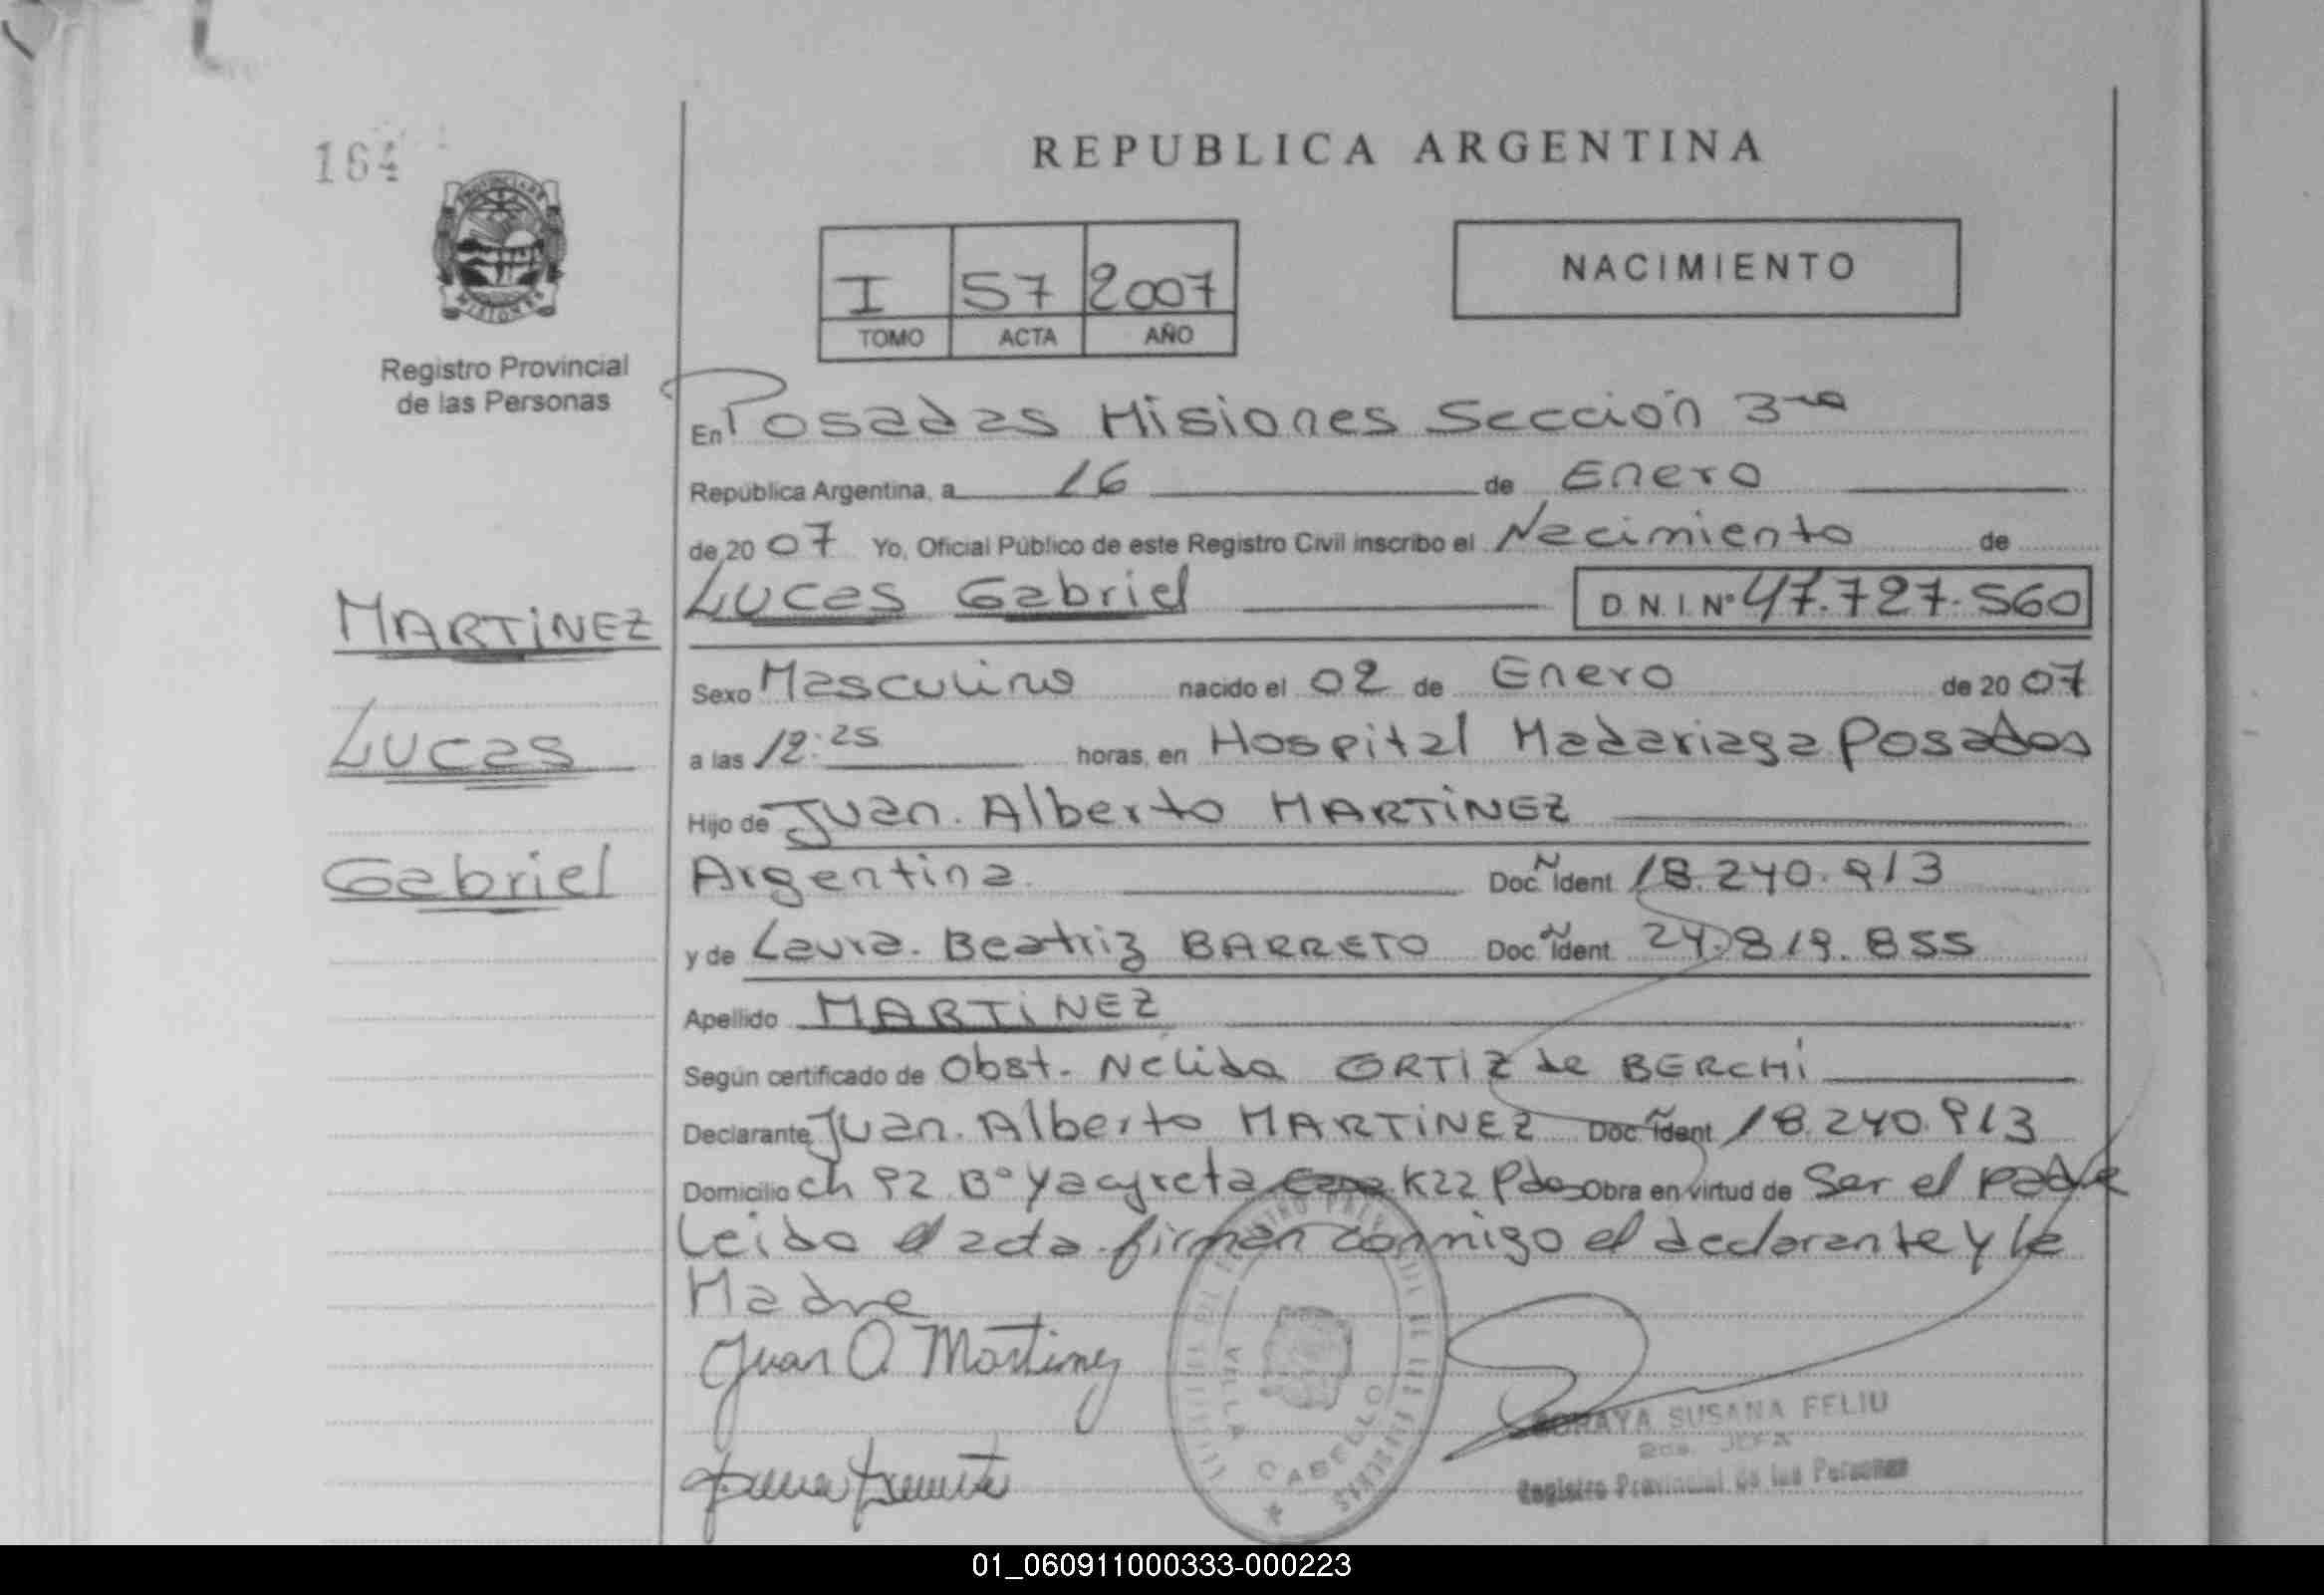 164
REPUBLICA ARGENTINA
NACIMIENTO
I 57 2007
TOMO ACTA AÑO
Registro Provincial
de las Personas
En Posadas Misiones Sección 3ra
República Argentina, a 16 de Enero
de 2007 Yo, Oficial Público de este Registro Civil inscribo el Nacimiento de
Lucas Gabriel D.N.I. Nº 47.727.560
MARTINEZ
Lucas
Gabriel
Sexo Masculino nacido el 02 de Enero de 2007
a las 12:25 horas, en Hospital Madariaga Posadas
Hijo de Juan Alberto MARTINEZ
Argentina Doc. Ident 18.240.913
y de Laura Beatriz BARRETO Doc. Ident 24.819.855
Apellido MARTINEZ
Según certificado de Obst. Nélida ORTIZ de BERCHI
Declarante Juan Alberto MARTINEZ Doc Ident 18.240.913
Domicilio ch 92 Bº Yacyreta K22 Pdas Obra en virtud de Ser el padre
Leido el acta firman conmigo el declarante y la
Madre
Juan A Martinez
VILLA CABELLO
SORAYA SUSANA FELIU
2da. JEFA
Registro Provincial de las Personas
01_060911000333-000223